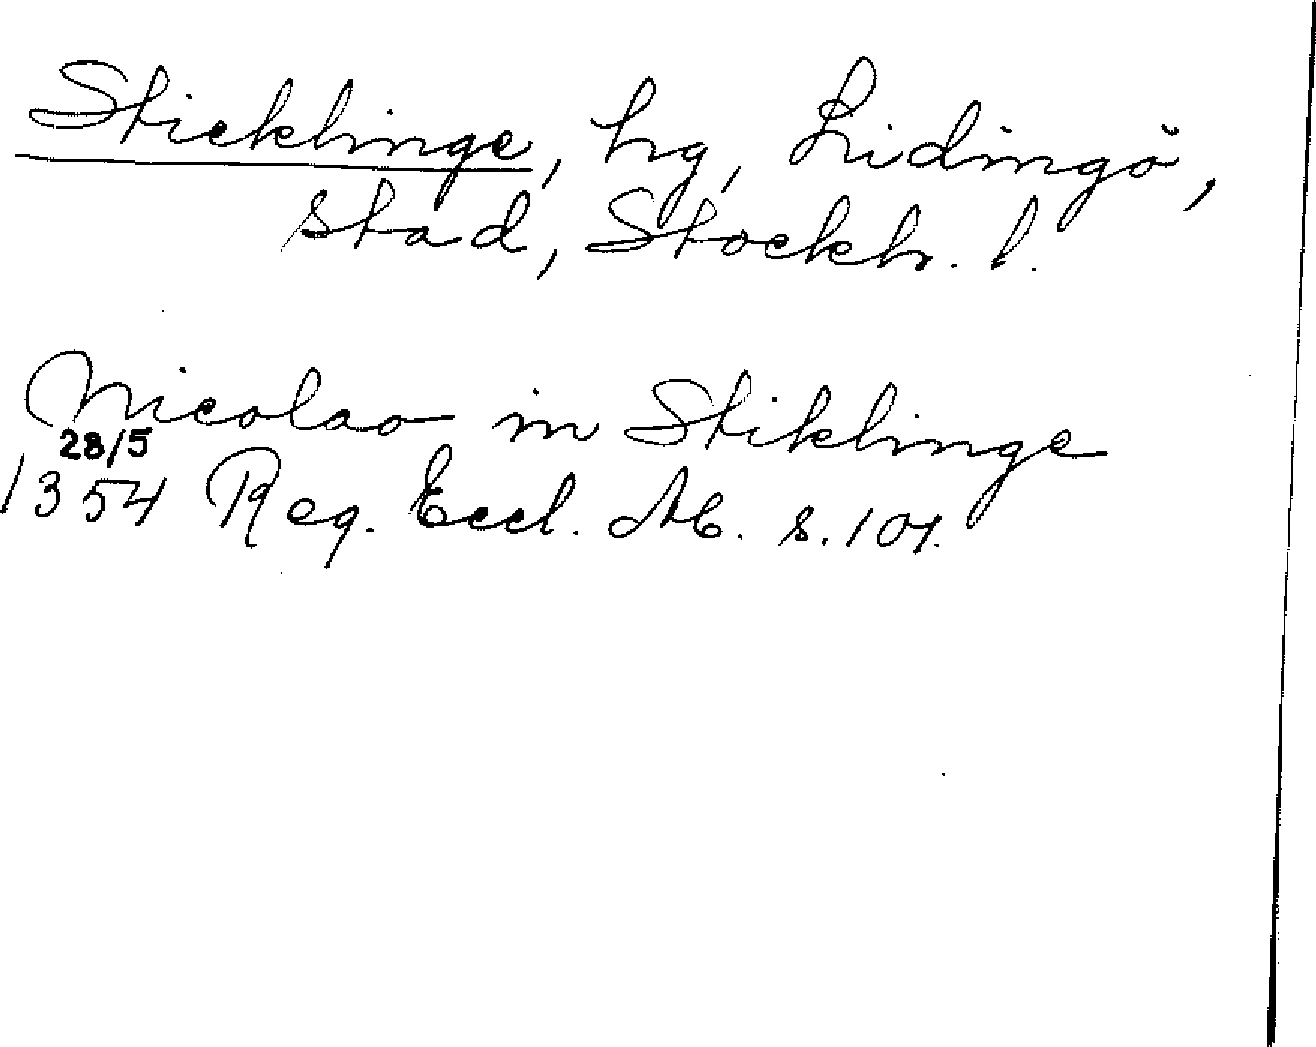 Sticklinge, hg, Lidingö,
stad, Stockh. l.
Nicolao in Stiklinge
28/5
1354 Reg. Eccl. s. 107.